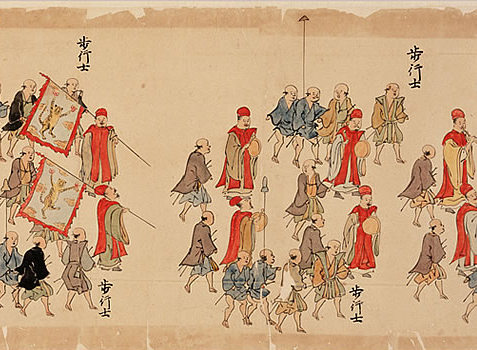 歩行士
歩行士
歩行士
歩行士